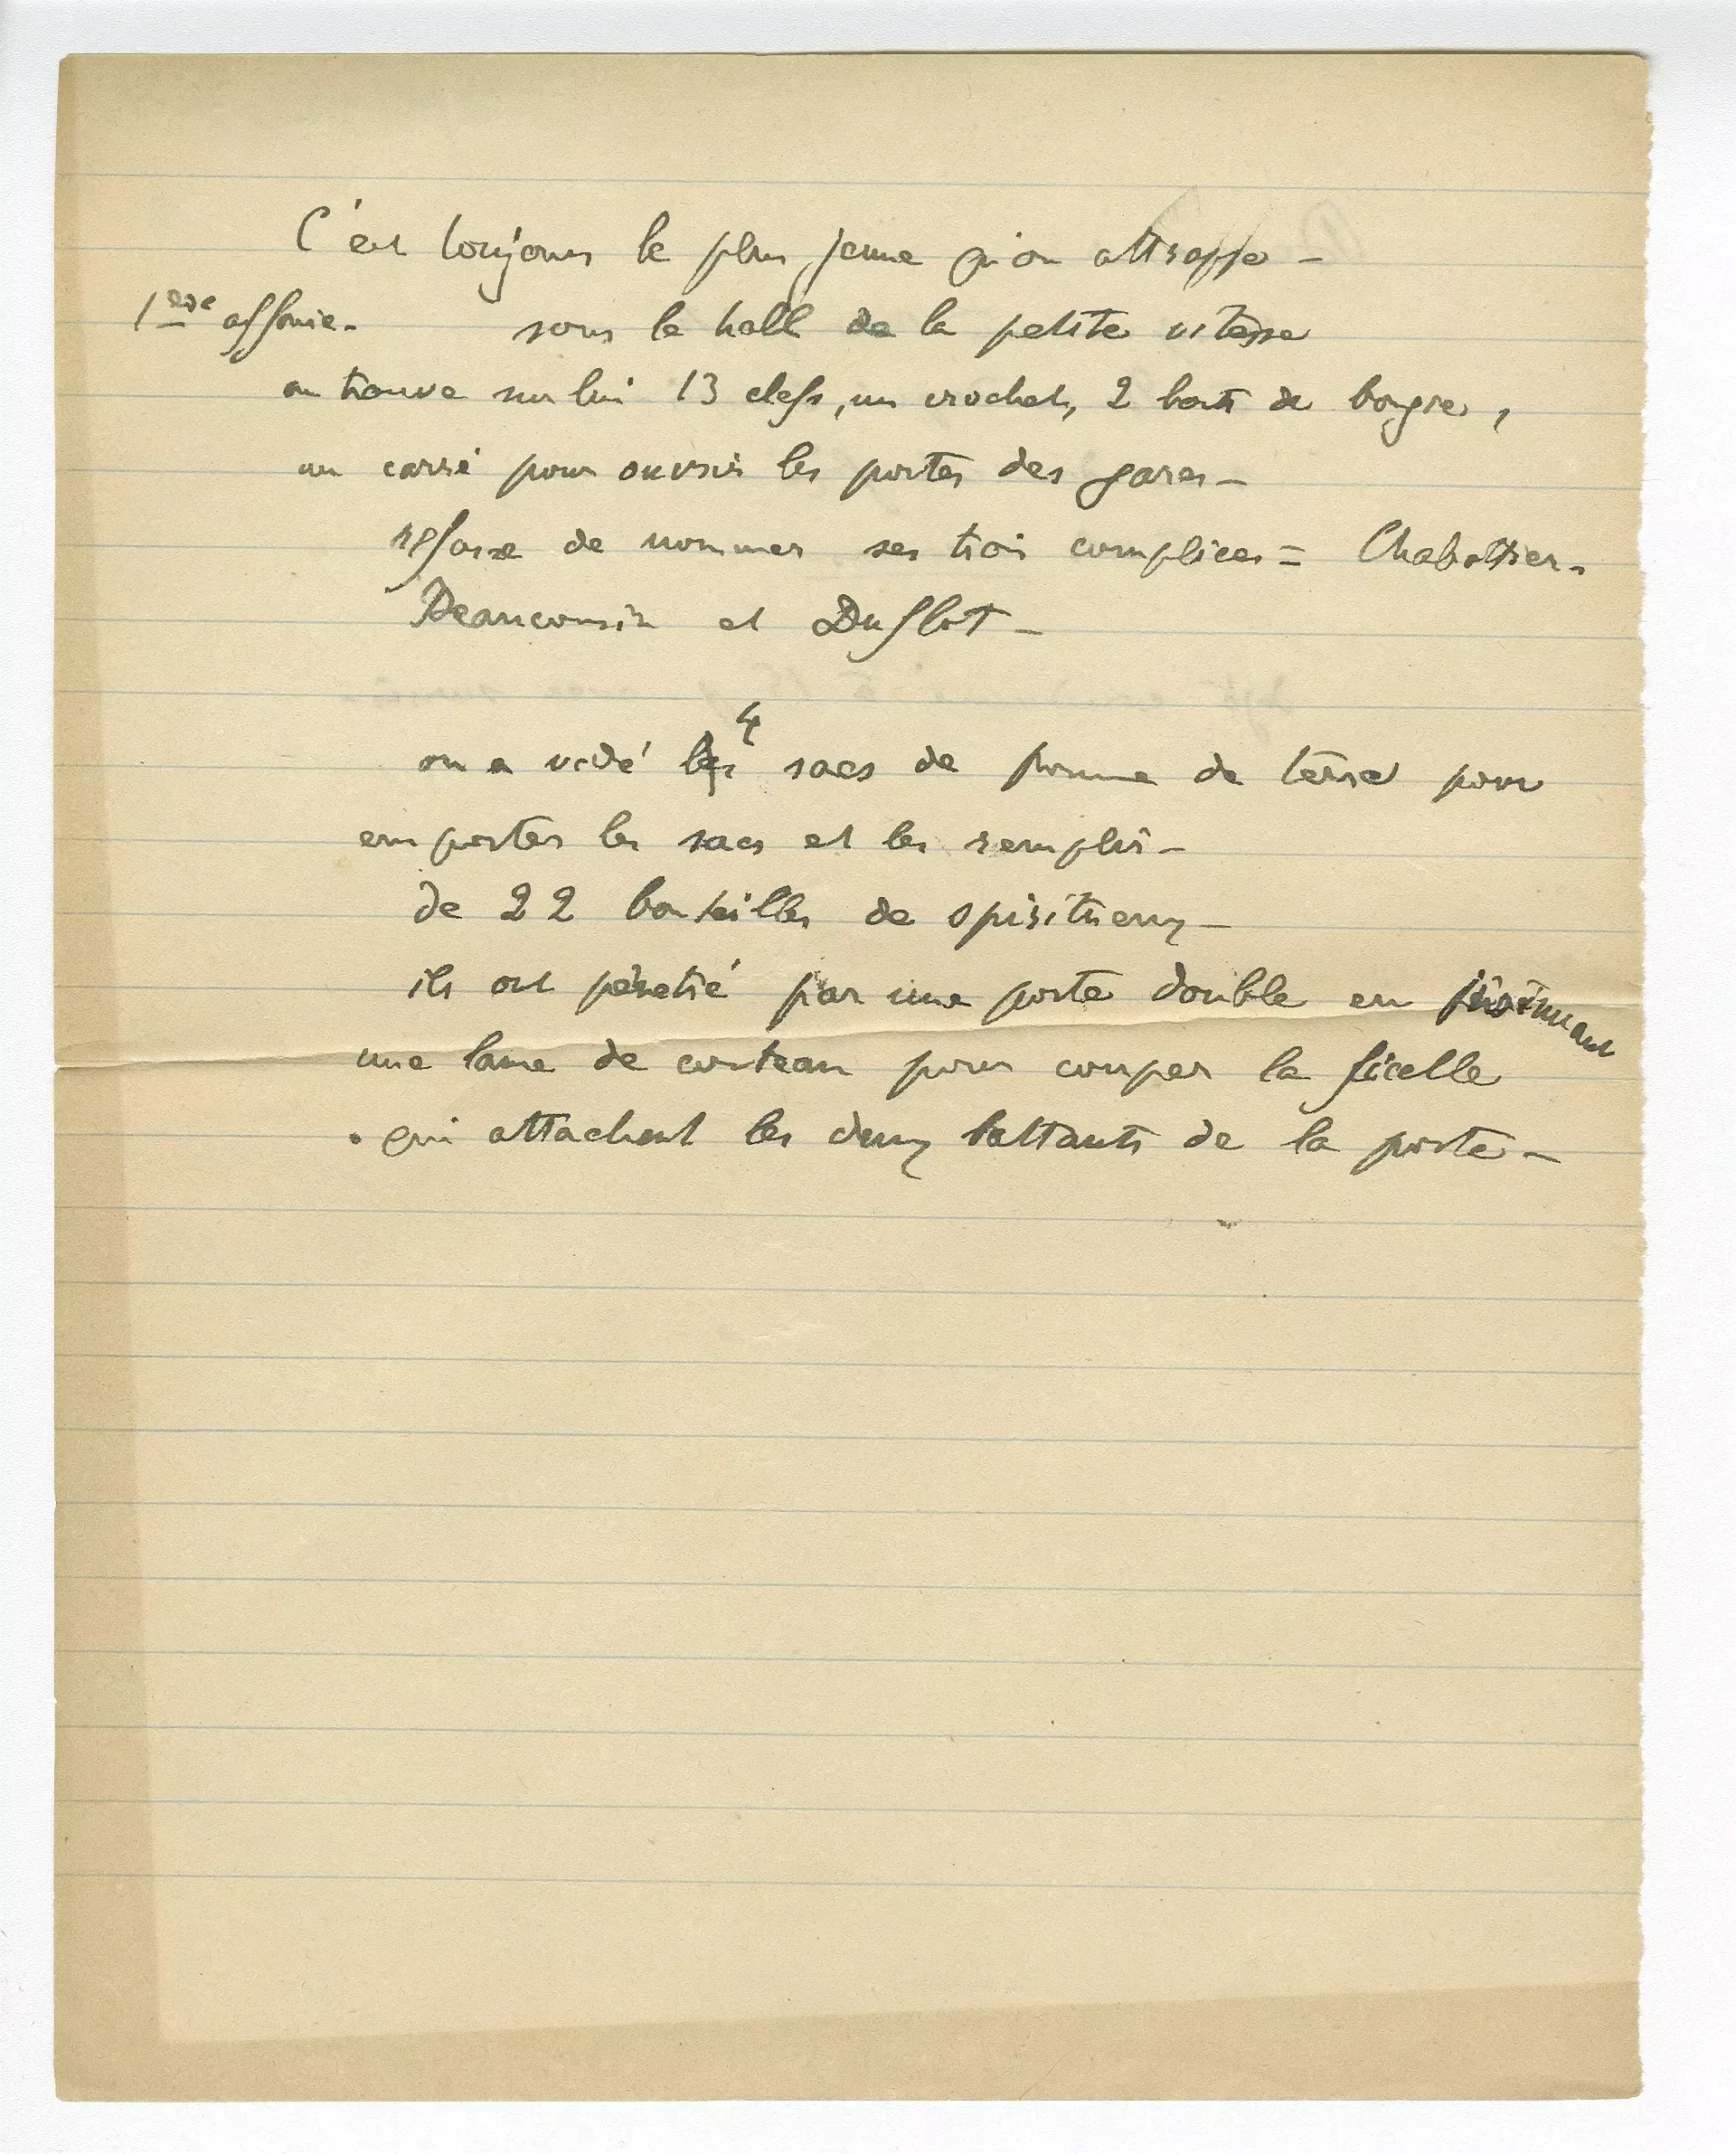 C'est toujours le plus jeune qu'on attrappe -
1ère affaire - sous le hall de la petite vitesse
on trouve sur lui 13 clefs, un crochet, 2 bouts de bougie,
un carré pour ouvrir les portes des gares -
refuse de nommer ses trois complices = Chabottier -
Beaucousin et Duflot -
on a vidé les 4 sacs de pomme de terre pour
emporter les sacs et les remplir -
de 22 bouteilles de spiritueux -
ils ont pénetré par une porte double en insinuant
une lame de couteau pour couper la ficelle
qui attachent les deux battants de la porte -